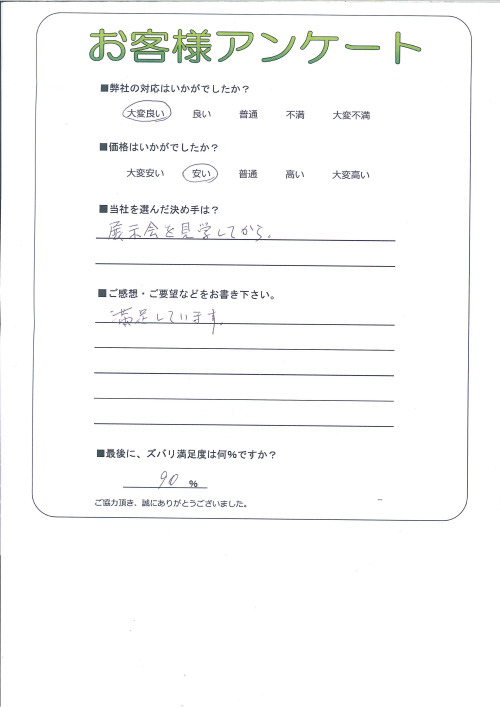 お客様アンケート
■弊社の対応はいかがでしたか？
大変良い 良い 普通 不満 大変不満
■価格はいかがでしたか？
大変安い 安い 普通 高い 大変高い
■当社を選んだ決め手は？
展示会を見学してから。
■ご感想・ご要望などをお書き下さい。
満足しています。
■最後に、ズバリ満足度は何%ですか？
90 %
ご協力頂き、誠にありがとうございました。